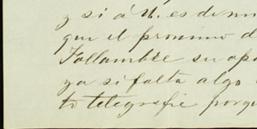 y si á U. es de
que el proximo d
Fallambre su apo
ya si falta algo
to telegrafie porqu